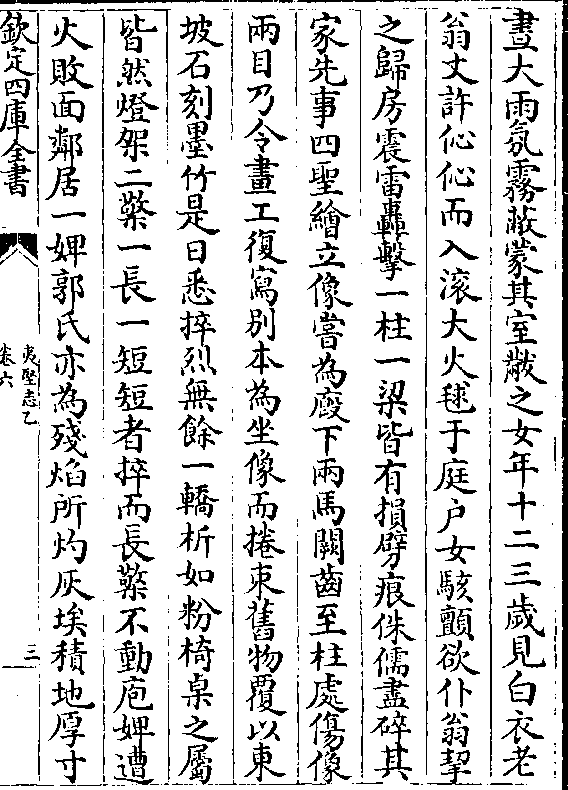 晝大雨氛霧蔽蒙其室黻之女年十二三歲見白衣老
翁丈許伈伈而入滚大火毬于庭户女駭顫欲仆翁挈
之歸房震雷轟擊一柱一梁皆有損劈痕侏儒盡碎其
家先事四聖繪立像嘗為廐下兩馬鬭齒至柱處傷像
兩目乃令畫工復寫别本為坐像而捲束舊物覆以東
坡石刻墨竹是日悉捽烈無餘一轎析如粉椅桌之屬
皆然燈架二檠一長一短短者捽而長檠不動庖婢遭
火敗面鄰居一婢郭氏亦為殘焰所灼灰埃積地厚寸
欽定四庫全書
夷堅志乙
卷六
三